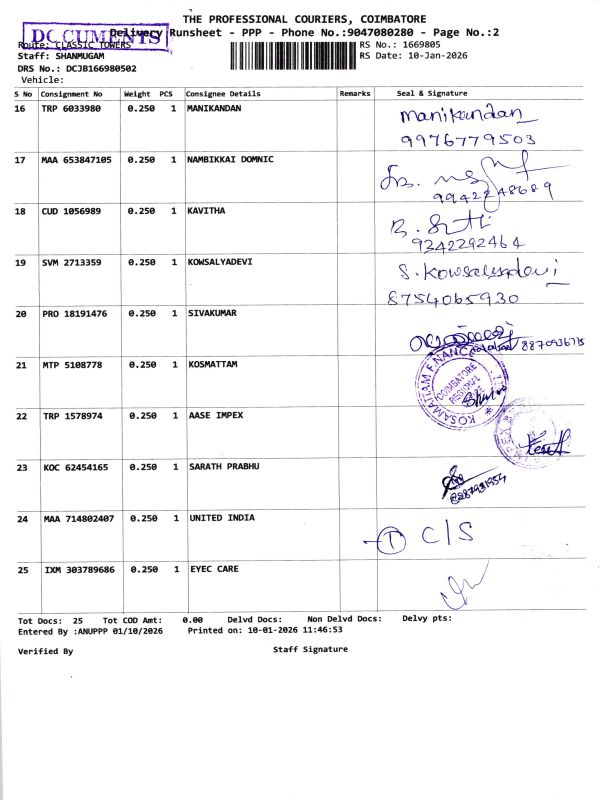 THE PROFESSIONAL COURIERS, COIMBATORE
DOCUMENTS
Delivery Runsheet - PPP - Phone No.:9047080280 - Page No.:2
Route: CLASSIC TOWERS
RS No.: 1669805
Staff: SHANMUGAM
RS Date: 10-Jan-2026
DRS No.: DCJB166980502
Vehicle:
S No Consignment No Weight PCS Consignee Details Remarks Seal & Signature
16 TRP 6033980 0.250 1 MANIKANDAN Manikandan
9976779503
17 MAA 653847105 0.250 1 NAMBIKKAI DOMNIC
9942248689
18 CUD 1056989 0.250 1 KAVITHA
9342292464
19 SVM 2713359 0.250 1 KOWSALYADEVI S. Kowsalyadevi
8754065930
20 PRO 18191476 0.250 1 SIVAKUMAR
21 MTP 5108778 0.250 1 KOSMATTAM KOSAMATTAM FINANCE COIMBATORE REGIONAL
22 TRP 1578974 0.250 1 AASE IMPEX
23 KOC 62454165 0.250 1 SARATH PRABHU
24 MAA 714802407 0.250 1 UNITED INDIA C/S
25 IXM 303789686 0.250 1 EYEC CARE
Tot Docs: 25 Tot COD Amt: 0.00 Delvd Docs: Non Delvd Docs: Delvy pts:
Entered By :ANUPPP 01/10/2026 Printed on: 10-01-2026 11:46:53
Verified By Staff Signature